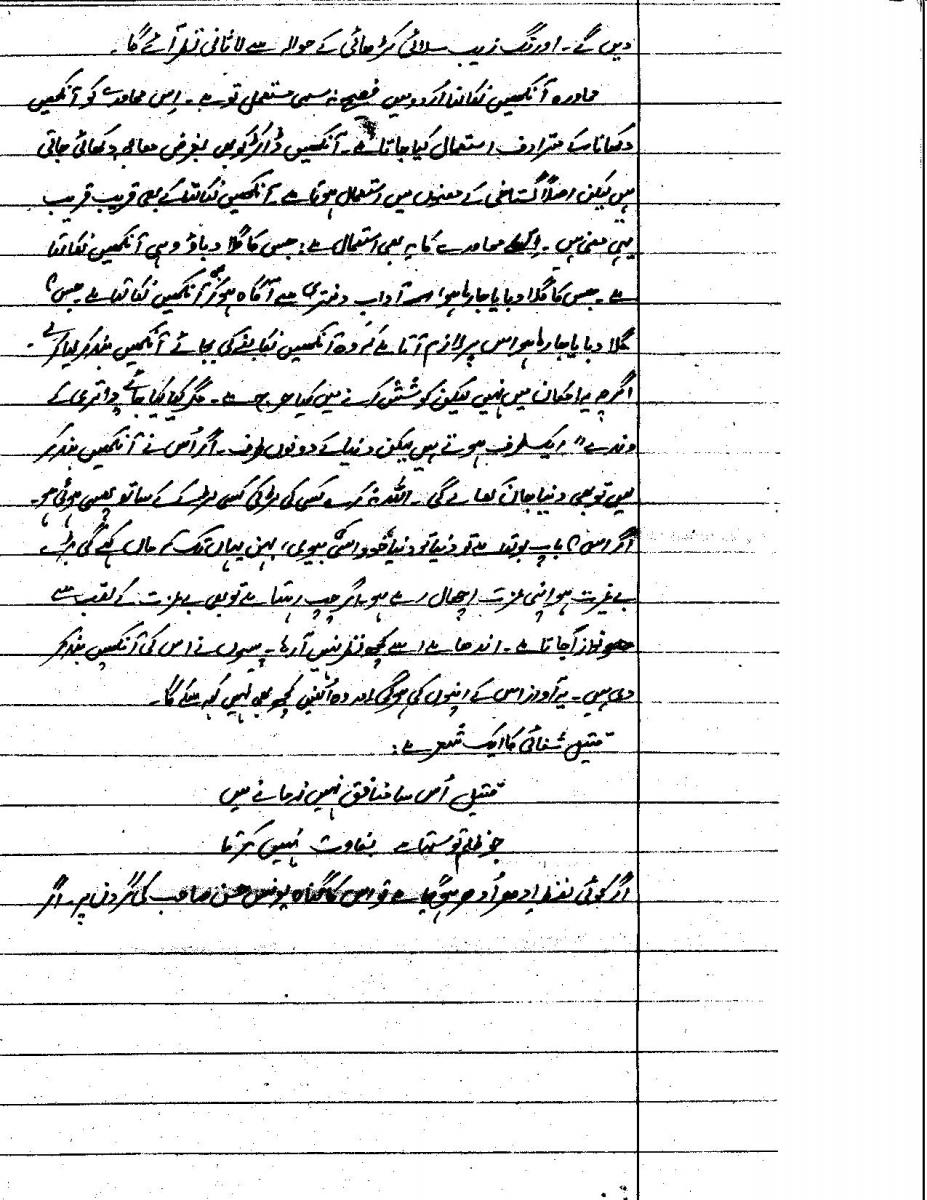 دیں گے۔ اورنگ زیب سلائی کڑھائی کے حوالہ سے لاثانی نظر آئے گا۔
محاورہ آنکھیں نکالنا اردو میں فصیح نہ سہی مستعمل تو ہے۔ اس محاورے کو آنکھیں
دکھانا کے مترادف استعمال کیا جاتا ہے۔ آنکھیں ڈاکٹر کو بھی بغرض معالجہ دکھائی جاتی
ہیں لیکن اصلاً گستاخی کے معنوں میں استعمال ہوتا ہے۔ آنکھیں نکالنا کے بھی قریب قریب
یہی معنی ہیں۔ محاورے کا یہ بھی استعمال ہے: جس کا گلا دباؤ وہی آنکھیں نکالتا
ہے۔ جس کا گلا دبایا جا رہا ہو آداب دفتری سے آگاہ ہو کر بھی آنکھیں نکالتا ہے جس کا
گلا دبایا جا رہا ہو اس پر لازم آتا ہے کہ وہ آنکھیں نکالنے کی بجائے آنکھیں بند کر لیا کرے۔
اگرچہ یہ امکان میں نہیں لیکن کوشش کرنے میں کیا حرج ہے۔ مگر کیا کیا جائے داتری کے
وندے" ایک طرف ہوتے ہیں لیکن دنیا کے دونوں طرف۔ اگر اُس نے آنکھیں بند کر
لیں تو بھی دنیا جان کھائے گی۔ اللہ نہ کرے کسی کی لڑکی کسی لڑکے کے ساتھ پھنسی ہوئی ہو۔
اگر اس کا باپ بولتا ہے تو دنیا تو دنیا خود اسکی بیوی، بہن یہاں تک کہ ماں کہے گی بڑے
بے غیرت ہو اپنی عزت اچھال رہے ہو۔ اگر چپ رہتا ہے تو بھی بے عزت کے لقب سے
نوازا جاتا ہے۔ اندھا ہے اسے کچھ نظر نہیں آرہا۔ پیسوں نے اس کی آنکھیں بند کر
دی ہیں۔ یہ آواز اس کے اپنوں کی ہوگی اور وہ اُنہیں کچھ بھی نہیں کہہ سکے گا۔
قتیل شفائی کا ایک شعر ہے:
قتیل اُس سا منافق نہیں زمانے میں
جو ظلم تو سہتا ہے بغاوت نہیں کرتا
اگر کوئی لفظ ادھر اُدھر ہو گیا ہے تو اس کا گناہ یونس حسن صاحب کی گردن پر۔ اگر